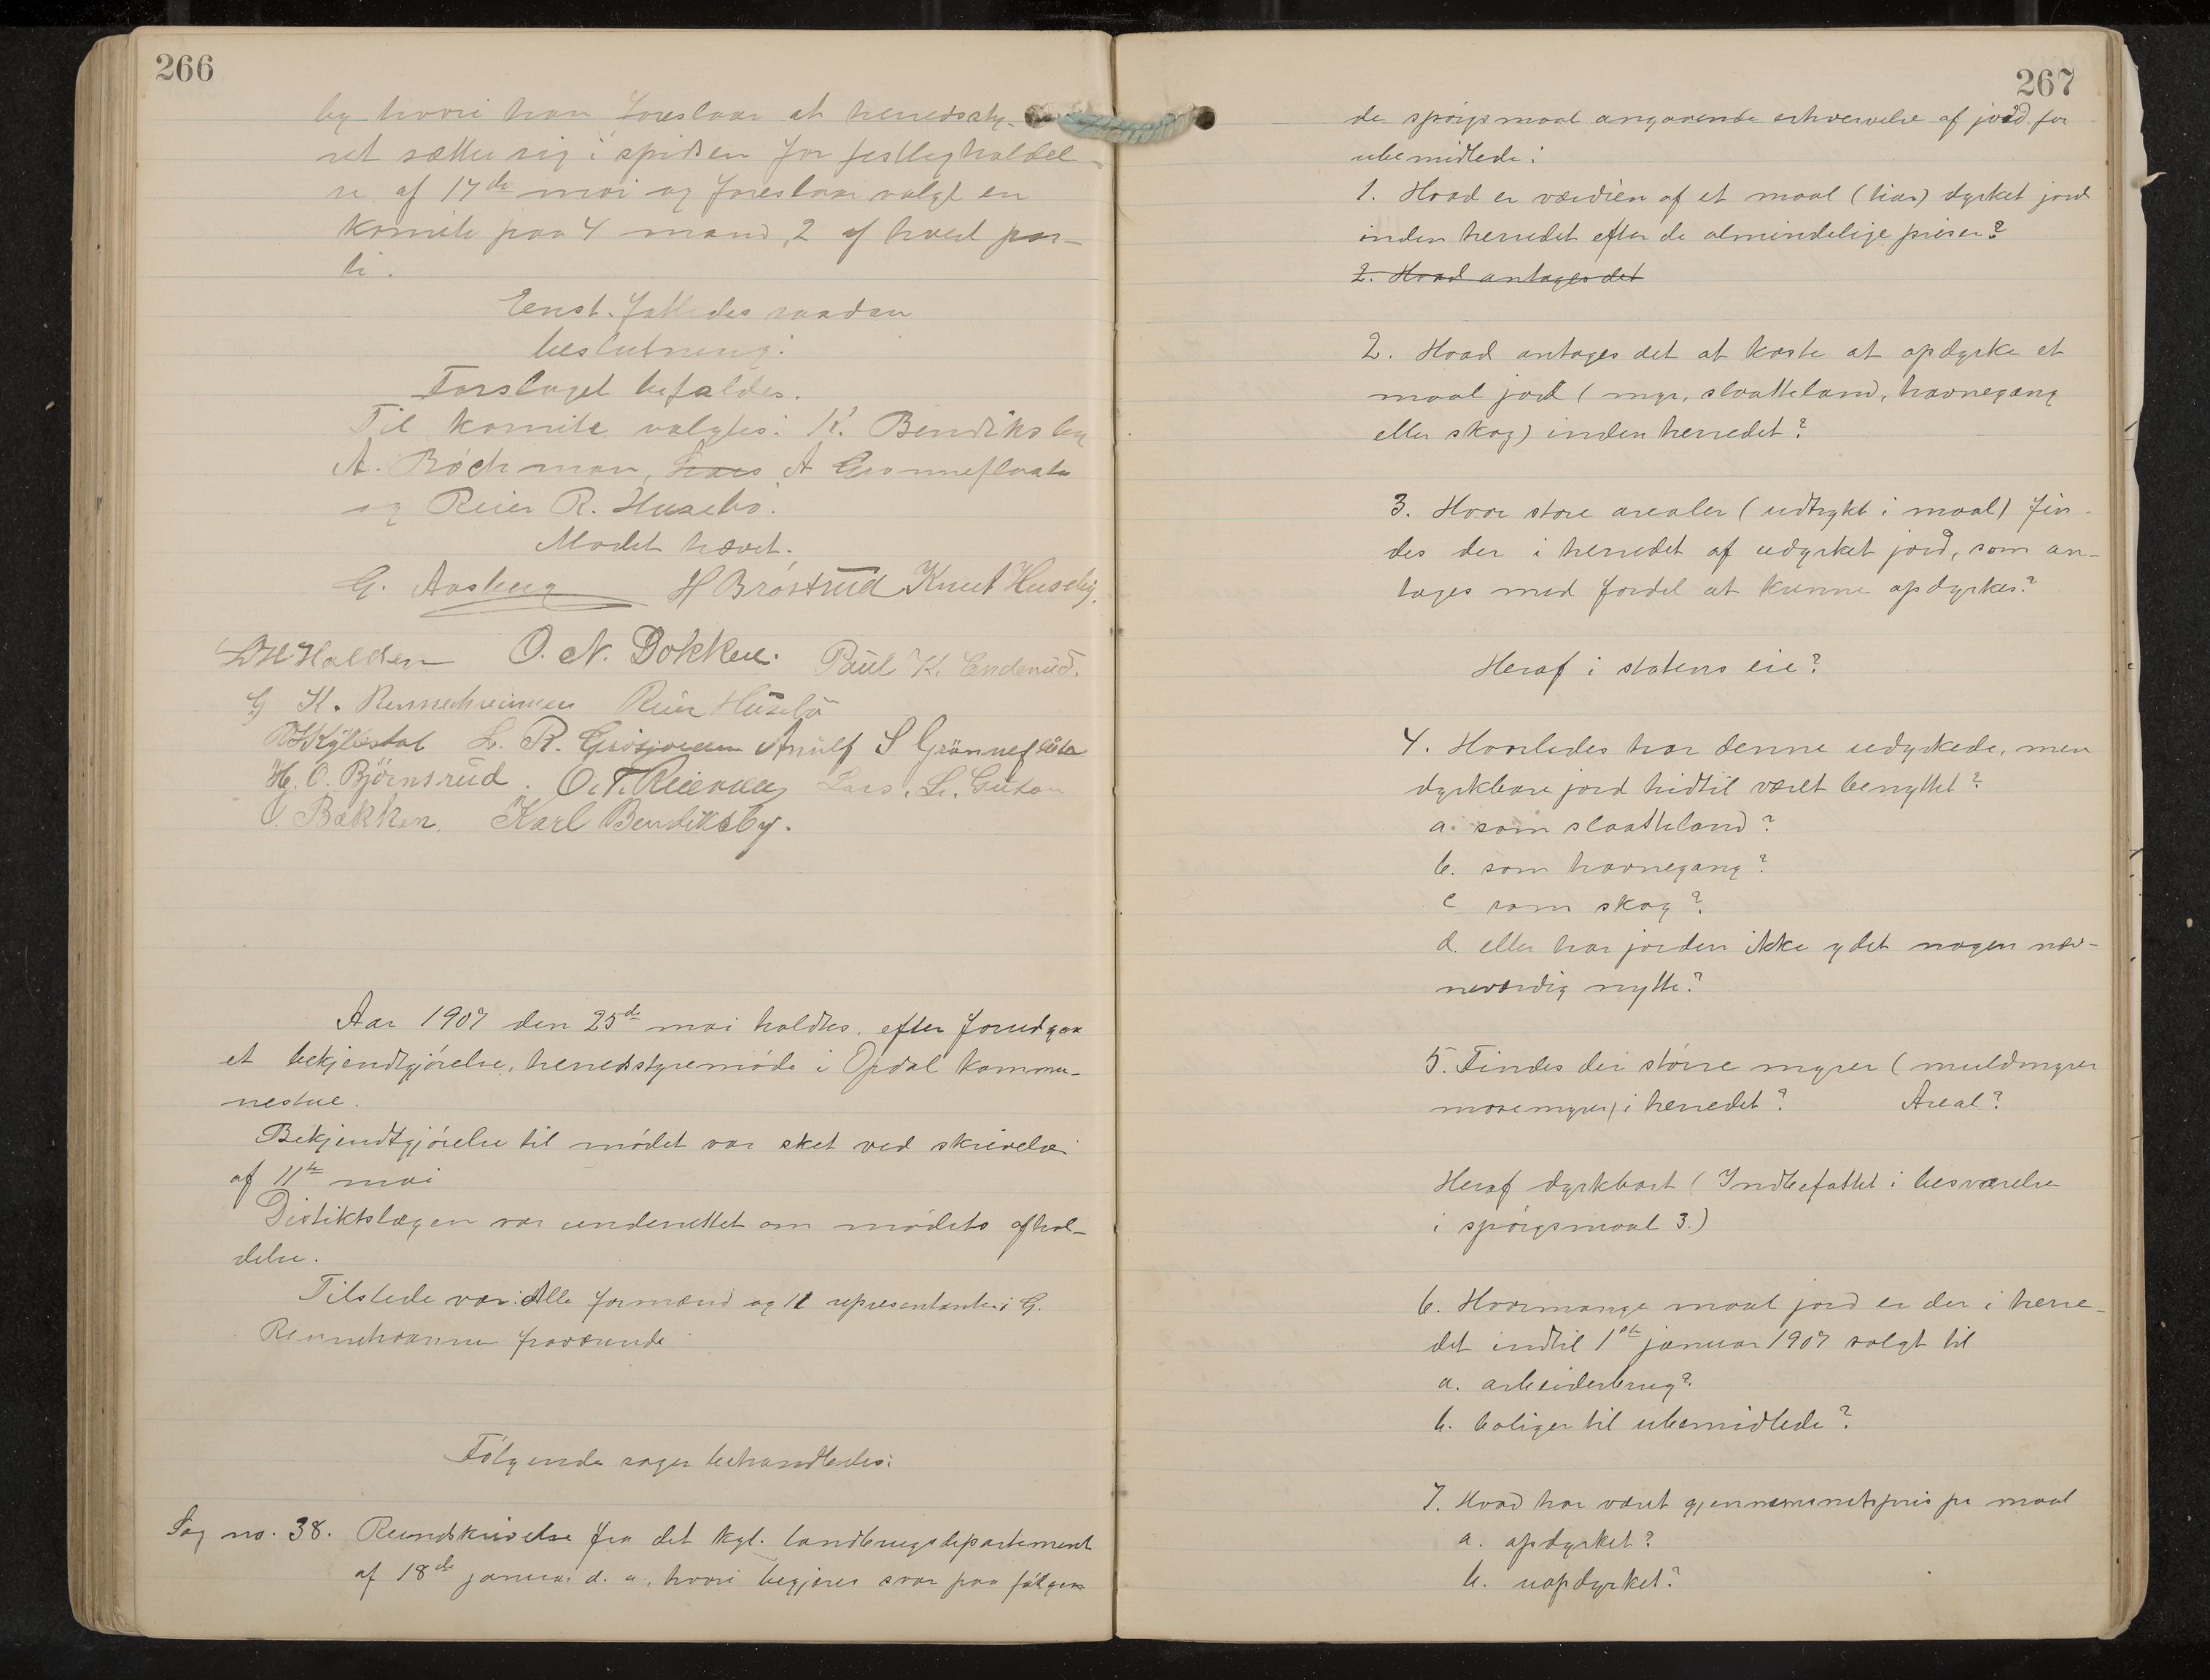 266
by hvori han foreslaar at herredssty-
ret sætter sig i spidsen for festligholdel
se af 17de mai og foreslaar valgt en
komite paa 4 mand, 2 af hvert par-
ti.
Enst. fattedes saadan
beslutning:
Forslaget bifaldes.
Til komite valgtes: K. Bendiksby
A. Böchman, Lars A Grønneflaata
og Reier R. Husebö.
Mødet hævet.
G. Aasberg H Bröstrud Knut Huseby.
Halden O. N. Dokken. Paul K. Enderud.
G K. Reier Husebö
L. R. Arnulf S Grönneflaata
H. O. Björnsrud. O. T. Lars. L.
O. Bakken. Karl Bendiksby.
Aar 1907 den 25de mai holdtes, efter forudgaa
et bekjendtgjörelse, herredsstyremöde i Opdal kommu-
nestue.
Bekjendtgjörelse til mödet var sket ved skrivelse
af 11te mai
Distriktslægen var underrettet om mödets afhol-
delse.
Tilstede var: Alle formænd og 11 repræsentanter: G.
fraværende
Fölgende sager behandledes:
Sag no. 38. Rundskrivelse fra det kgl. landbrugsdepartement
af 18de januar d. a., hvori begjæres svar paa fölgen
267
de spörgsmaal angaaende erhvervelse af jord for
ubemidlede:
1. Hvad er værdien af et maal (tiar) dyrket jord
inden herredet efter de almindelige priser?
2. Hvad antages det
2. Hvad antages det at koste at opdyrke et
maal jord (myr, slaatteland, havnegang
eller skog) inden herredet?
3. Hvor store arealer (udtrykt i maal) fin-
des der i herredet af udyrket jord, som an-
tages med fordel at kunne opdyrkes?
Heraf i statens eie?
4. Hvorledes har denne udyrkede, men
dyrkbare jord hidtil været benyttet?
a. som slaatteland?
b. som havnegang?
c som skog?
d. eller har jorden ikke ydet nogen næv-
neværdig nytte?
5. Findes der större myrer (muldmyrer
mosemyrer) i herredet? Areal?
Heraf dyrkbart (Indbefattet i besvarelse
i spörgsmaal 3.)
6. Hvormange maal jord er der i herre-
det indtil 1ste januar 1907 solgt til
a. arbeiderbrug?
b. boliger til ubemidlede?
7. Hvad har været gjennemsnitspris pr maal
a. opdyrket?
b. uopdyrket?